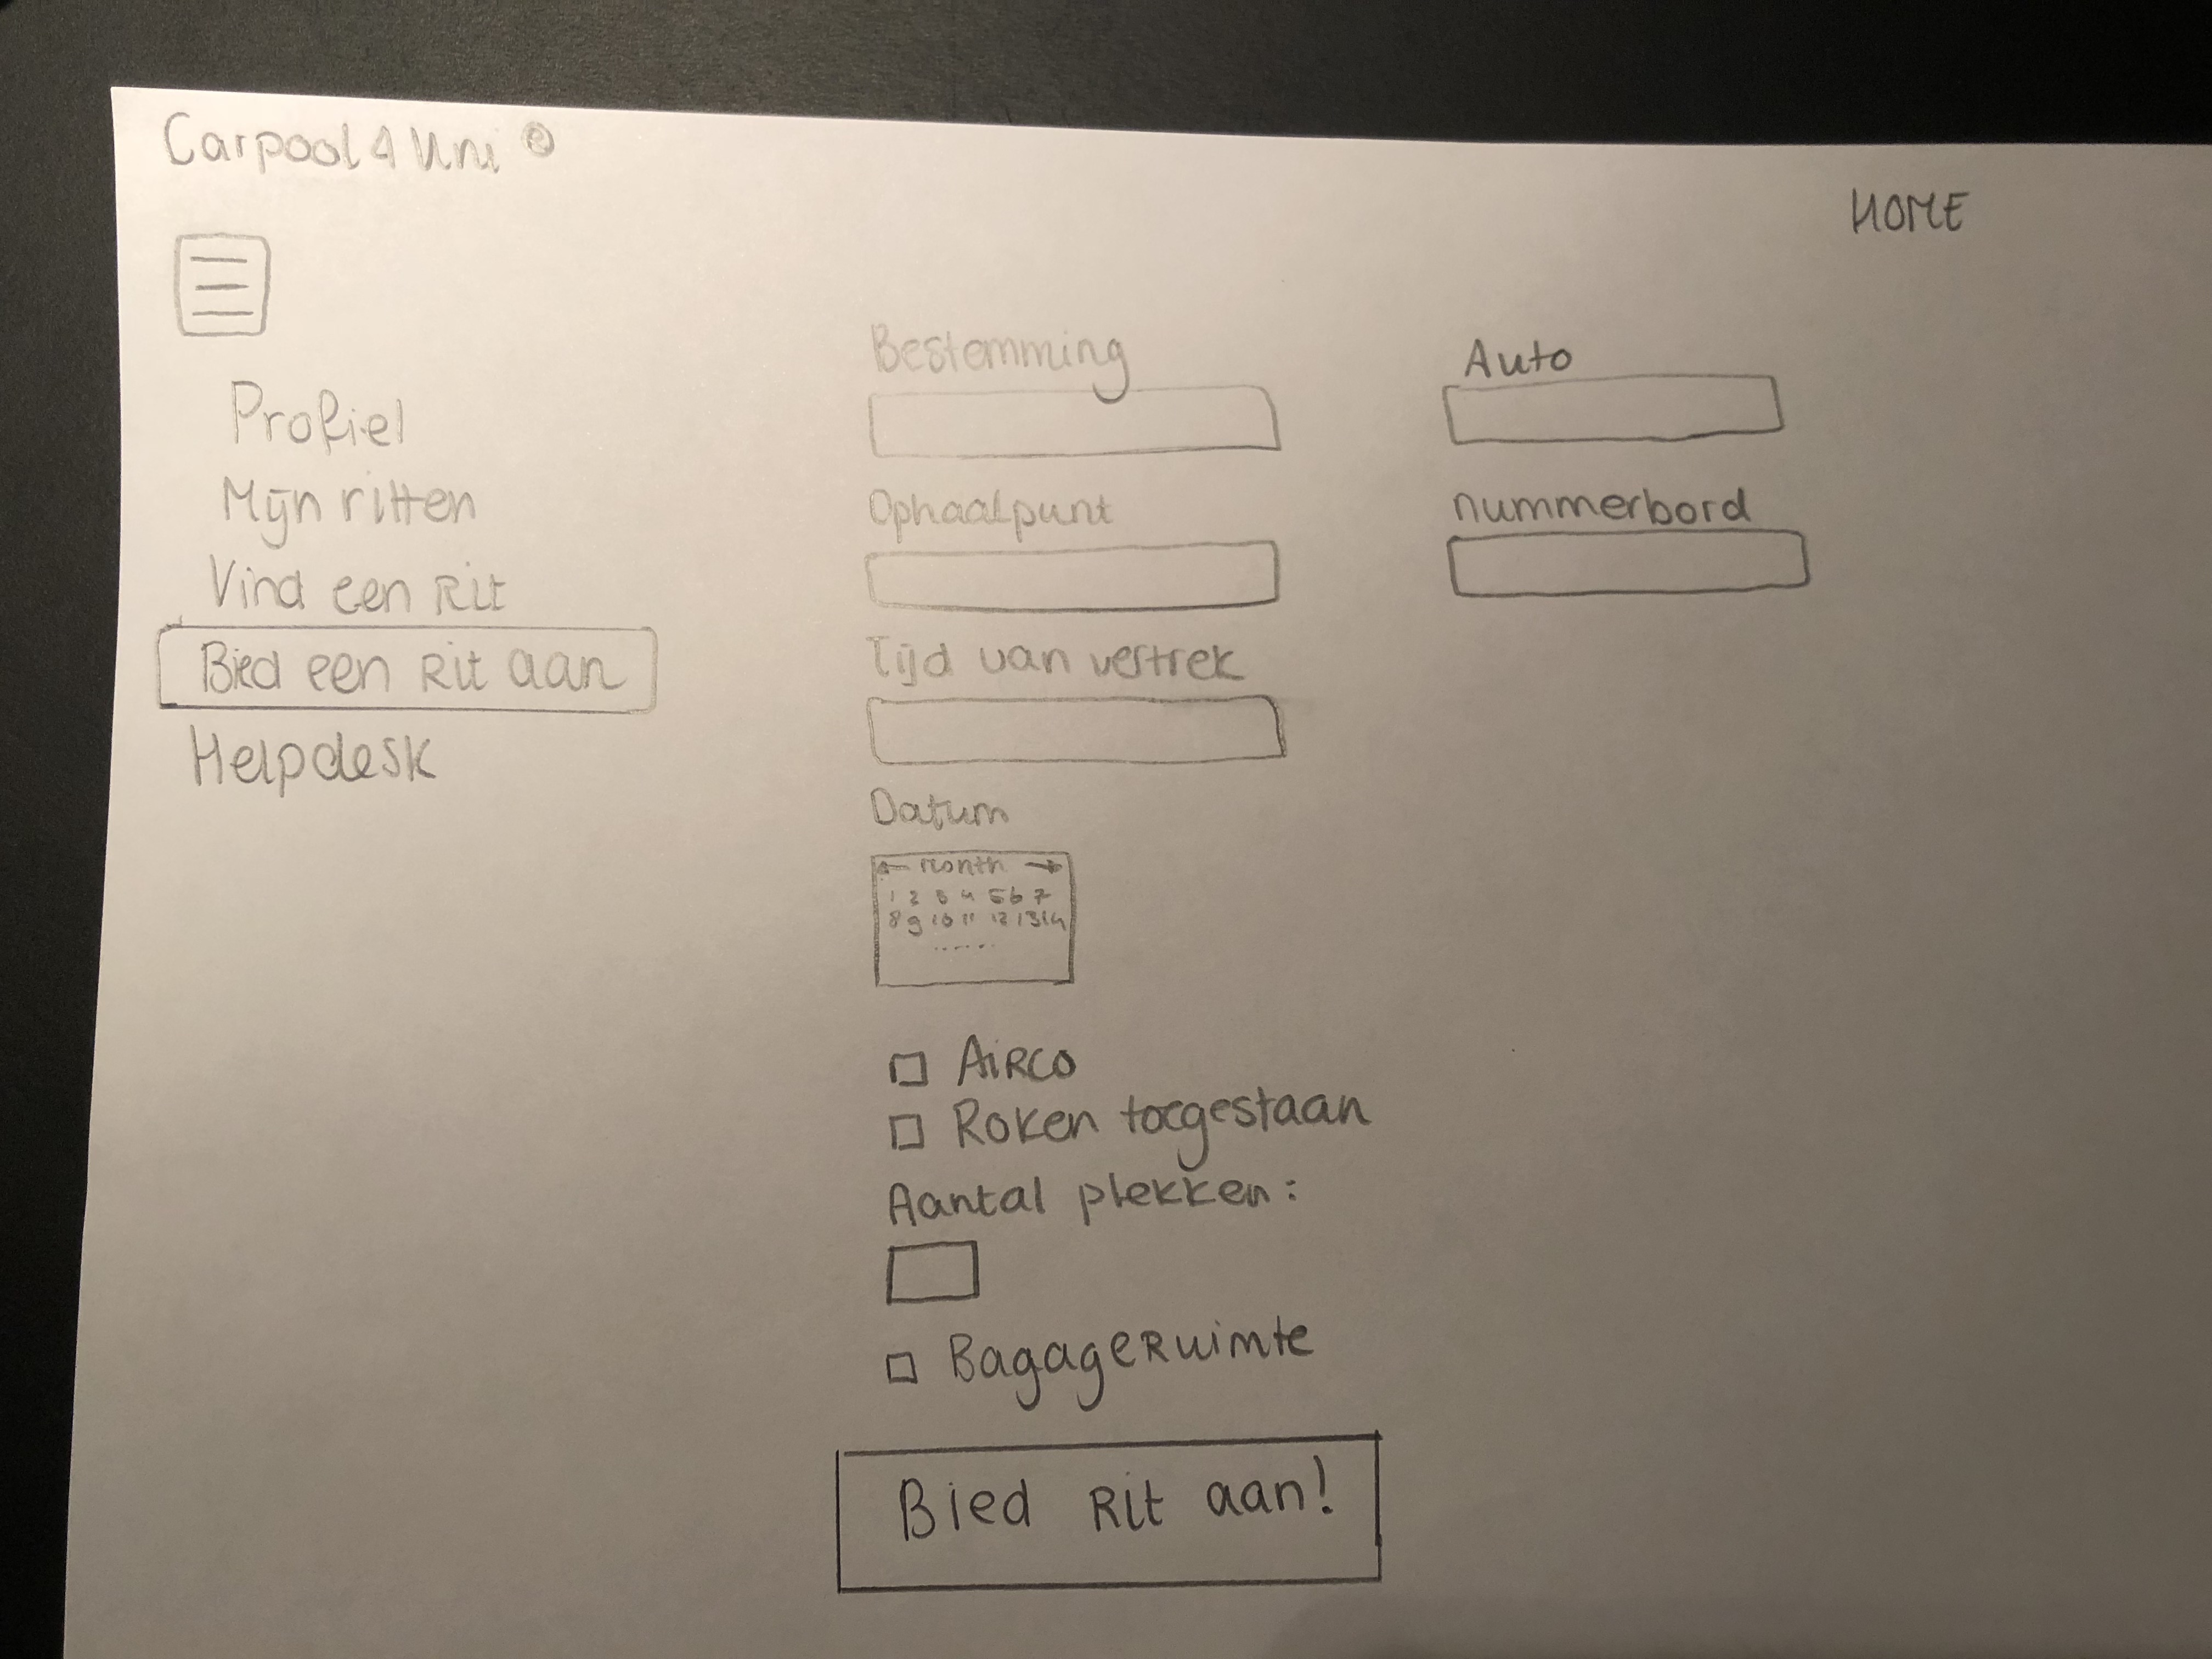 Carpool 4 Uni ®
HOME
Profiel
Mijn ritten
Vind een Rit
Bied een Rit aan
Helpdesk
Bestemming
Ophaalpunt
Tijd van vertrek
Datum
← Month →
1 2 3 4 5 6 7
8 9 10 11 12 13 14
......
Airco
Roken toegestaan
Aantal plekken:
Bagageruimte
Bied Rit aan!
Auto
nummerbord